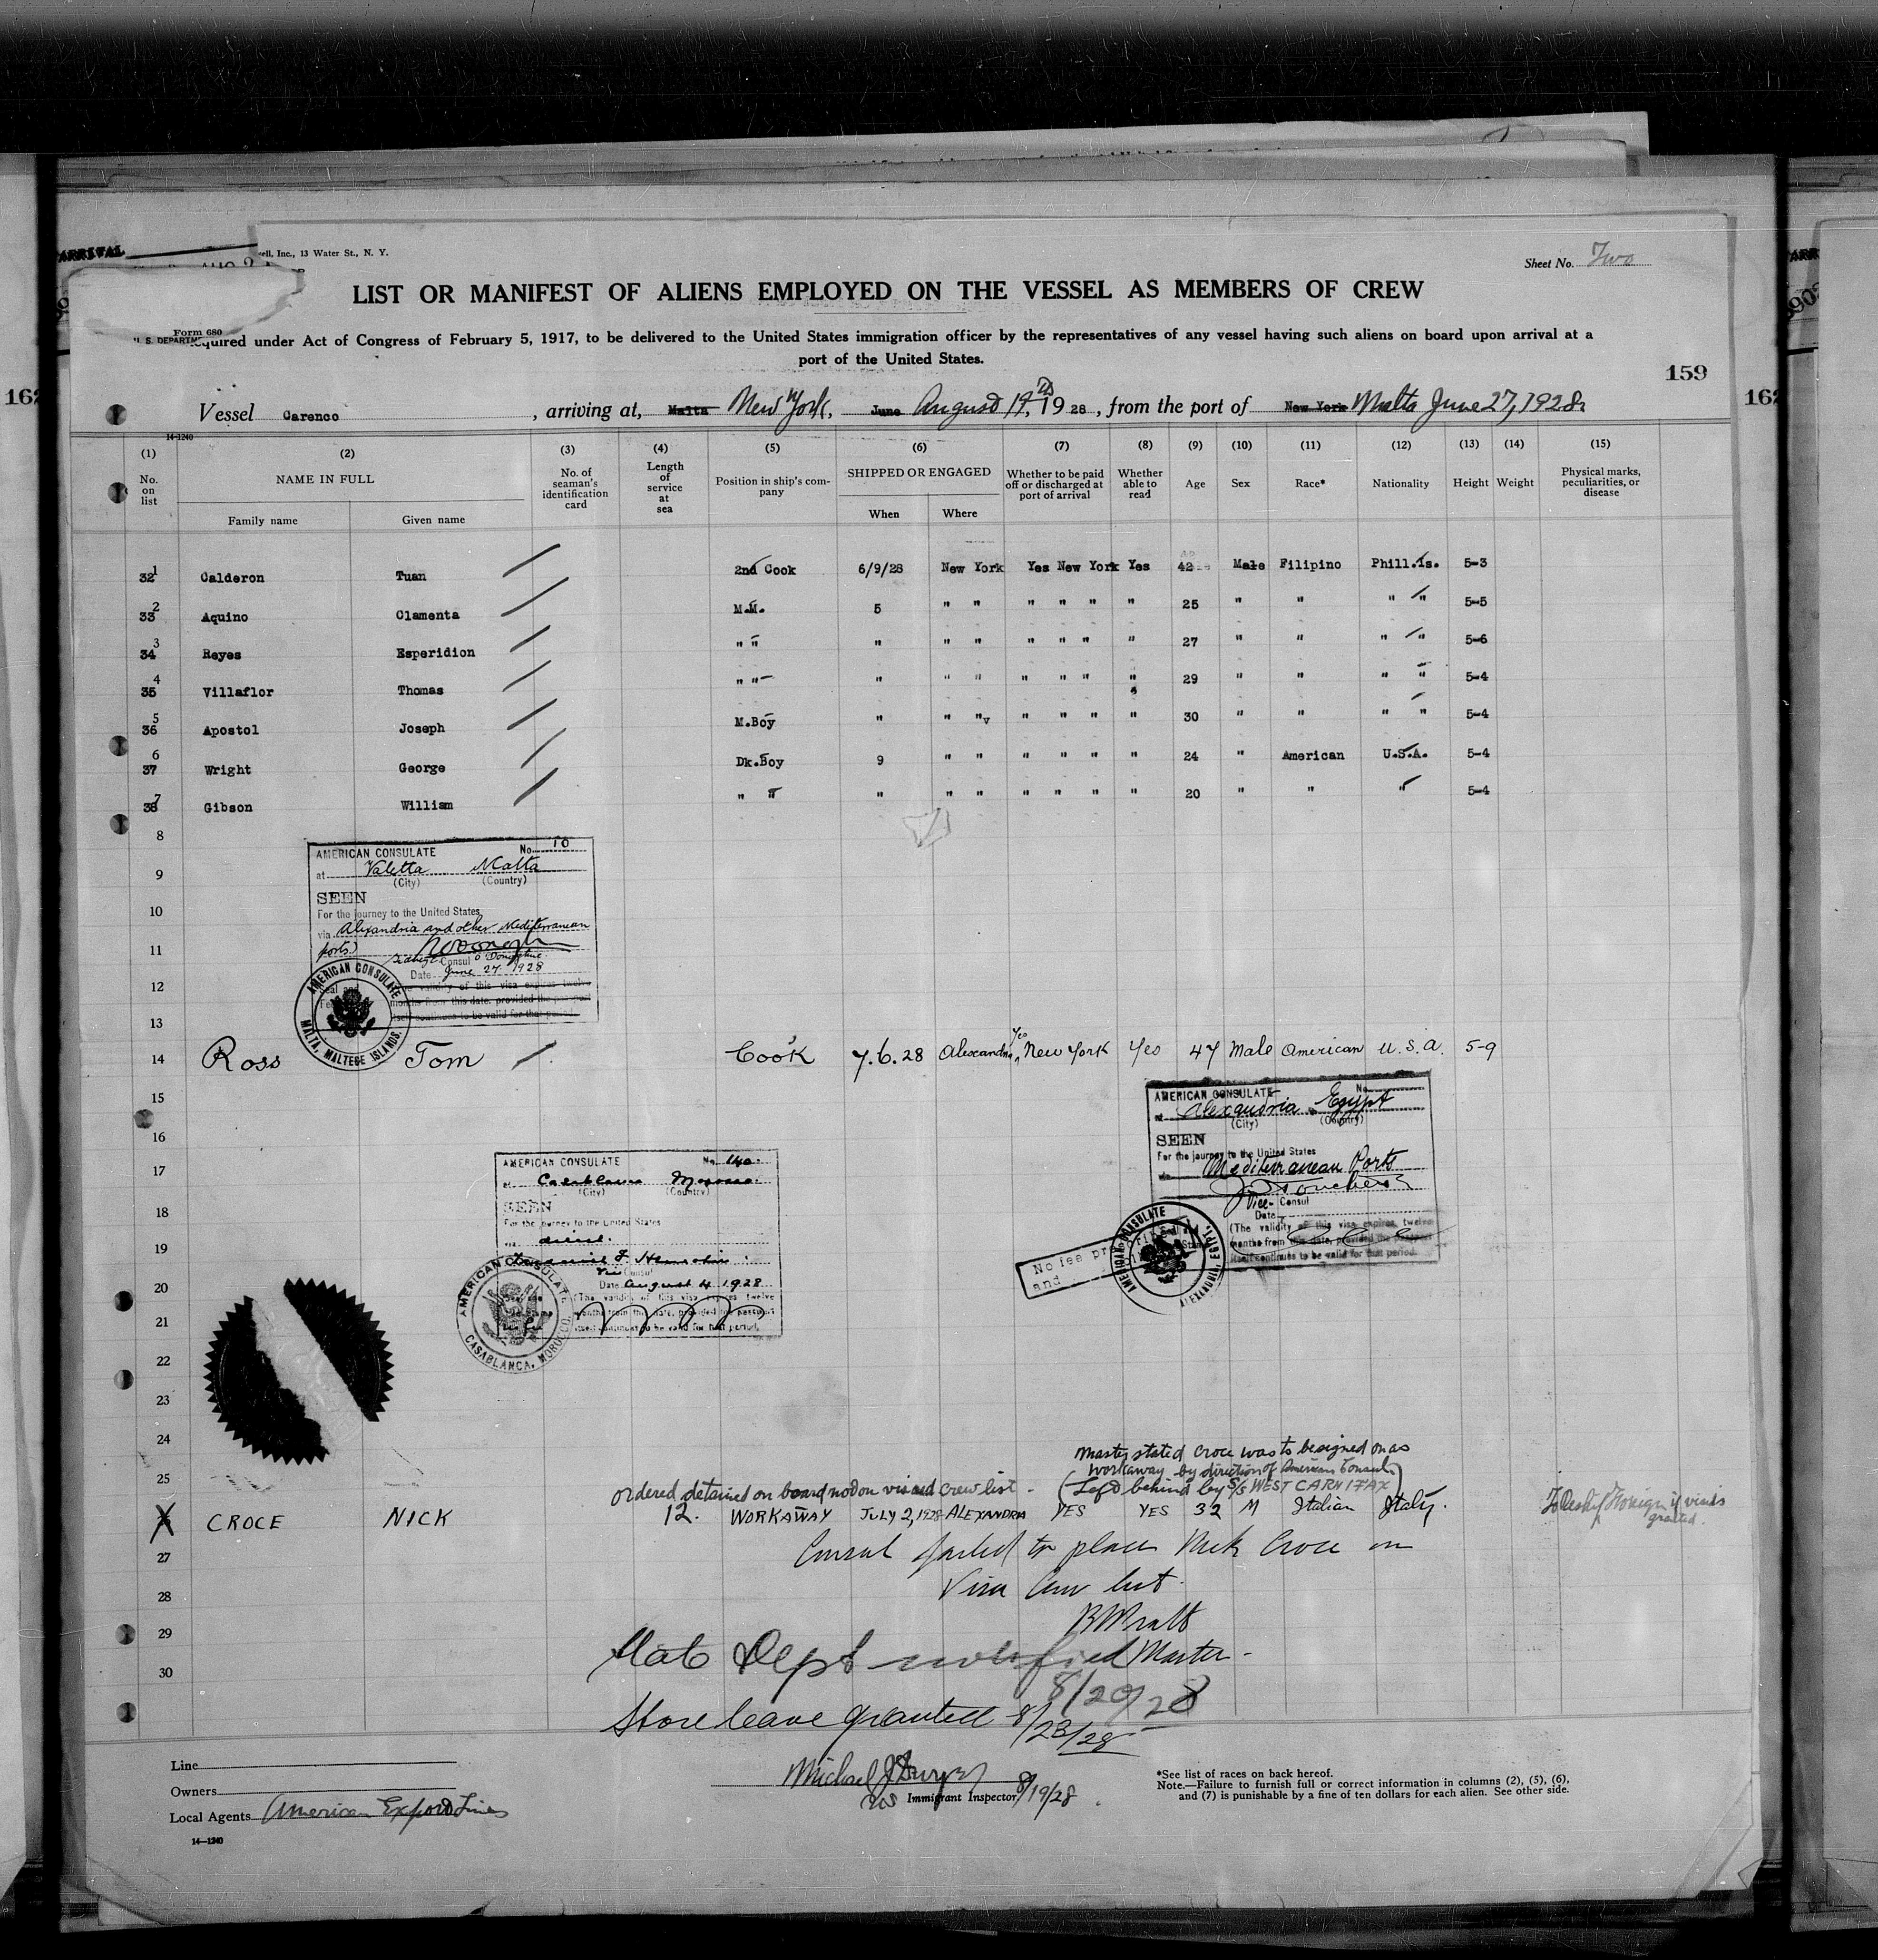 ARRIVAL
sell, Inc., 13 Water St., N. Y.
Sheet No. Two
LIST OR MANIFEST OF ALIENS EMPLOYED ON THE VESSEL AS MEMBERS OF CREW
Form 680
U. S. DEPARTM
quired under Act of Congress of February 5, 1917, to be delivered to the United States immigration officer by the representatives of any vessel having such aliens on board upon arrival at a
port of the United States.
159
162
162
Vessel Carenco, arriving at, Malta New York, June August 19, 1928, from the port of New York Malta June 27, 1928
14-1240
(1) (2) (3) (4) (5) (6) (7) (8) (9) (10) (11) (12) (13) (14) (15)
No. on list NAME IN FULL No. of seaman's identification card Length of service at sea Position in ship's company SHIPPED OR ENGAGED Whether to be paid off or discharged at port of arrival Whether able to read Age Sex Race* Nationality Height Weight Physical marks, peculiarities, or disease
Family name Given name When Where
32 1 Calderon Tuan 2nd Cook 6/9/28 New York Yes New York Yes 42 Male Filipino Phill.Is. 5-3
33 2 Aquino Clamenta M.M. 5 " " " " " " 25 " " " " 5-5
34 3 Reyes Esperidion " " " " " " " " " 27 " " " " 5-6
35 4 Villaflor Thomas " " " " " " " " " 29 " " " " 5-4
36 5 Apostol Joseph M.Boy " " " " " " " 30 " " " " 5-4
37 6 Wright George Dk.Boy 9 " " " " " " 24 " American U.S.A. 5-4
38 7 Gibson William " " " " " " " " " 20 " " " 5-4
8
9
10
11
12
13
AMERICAN CONSULATE No. 10
at Valetta Malta
(City) (Country)
SEEN
For the journey to the United States
via Alexandria and other Mediterranean
ports)
Consul
Date June 27 1928
validity of this visa expires twelve
months from this date, provided the passport
itself continues to be valid for that period.
AMERICAN CONSULATE
MALTA, MALTESE ISLANDS.
14 Ross Tom Cook 7.6.28 Alexandria Yes New York Yes 47 Male American U.S.A. 5-9
15
16
17
18
19
20
21
22
23
24
25
AMERICAN CONSULATE No.
at Alexandria Egypt
(City) (Country)
SEEN
For the journey to the United States
via Mediterranean Ports
Vice- Consul
Date
(The validity of this visa expires twelve
months from this date, provided the passport
itself continues to be valid for that period.
No fee prescribed
and
AMERICAN CONSULATE
ALEXANDRIA, EGYPT.
AMERICAN CONSULATE No. 140.
at Casablanca Morocco.
(City) (Country)
SEEN
For the journey to the United States
via direct.
Vice Consul
Date August 4 1928
(The validity of this visa expires twelve
months from this date, provided the passport
itself continues to be valid for that period.
AMERICAN CONSULATE
CASABLANCA, MOROCCO.
Master stated Croce was to be signed on as
workaway by direction of American Consul.
(Left behind by S/S WEST CARNIFAX)
ordered detained on board not on visaed crew list.
X CROCE NICK 12. WORKAWAY JULY 2, 1928 ALEXANDRIA YES YES 32 M Italian Italy.
if visa is
granted.
Consul failed to place Nick Croce on
Visa Crew list.
27
28
29
30
Master.
State Dept notified
8/20/28
Shore leave granted 8/23/28
Line
Owners
Local Agents American Export Lines
14—1240
Michael J Dwyer
US Immigrant Inspector 8/19/28.
*See list of races on back hereof.
Note.—Failure to furnish full or correct information in columns (2), (5), (6),
and (7) is punishable by a fine of ten dollars for each alien. See other side.